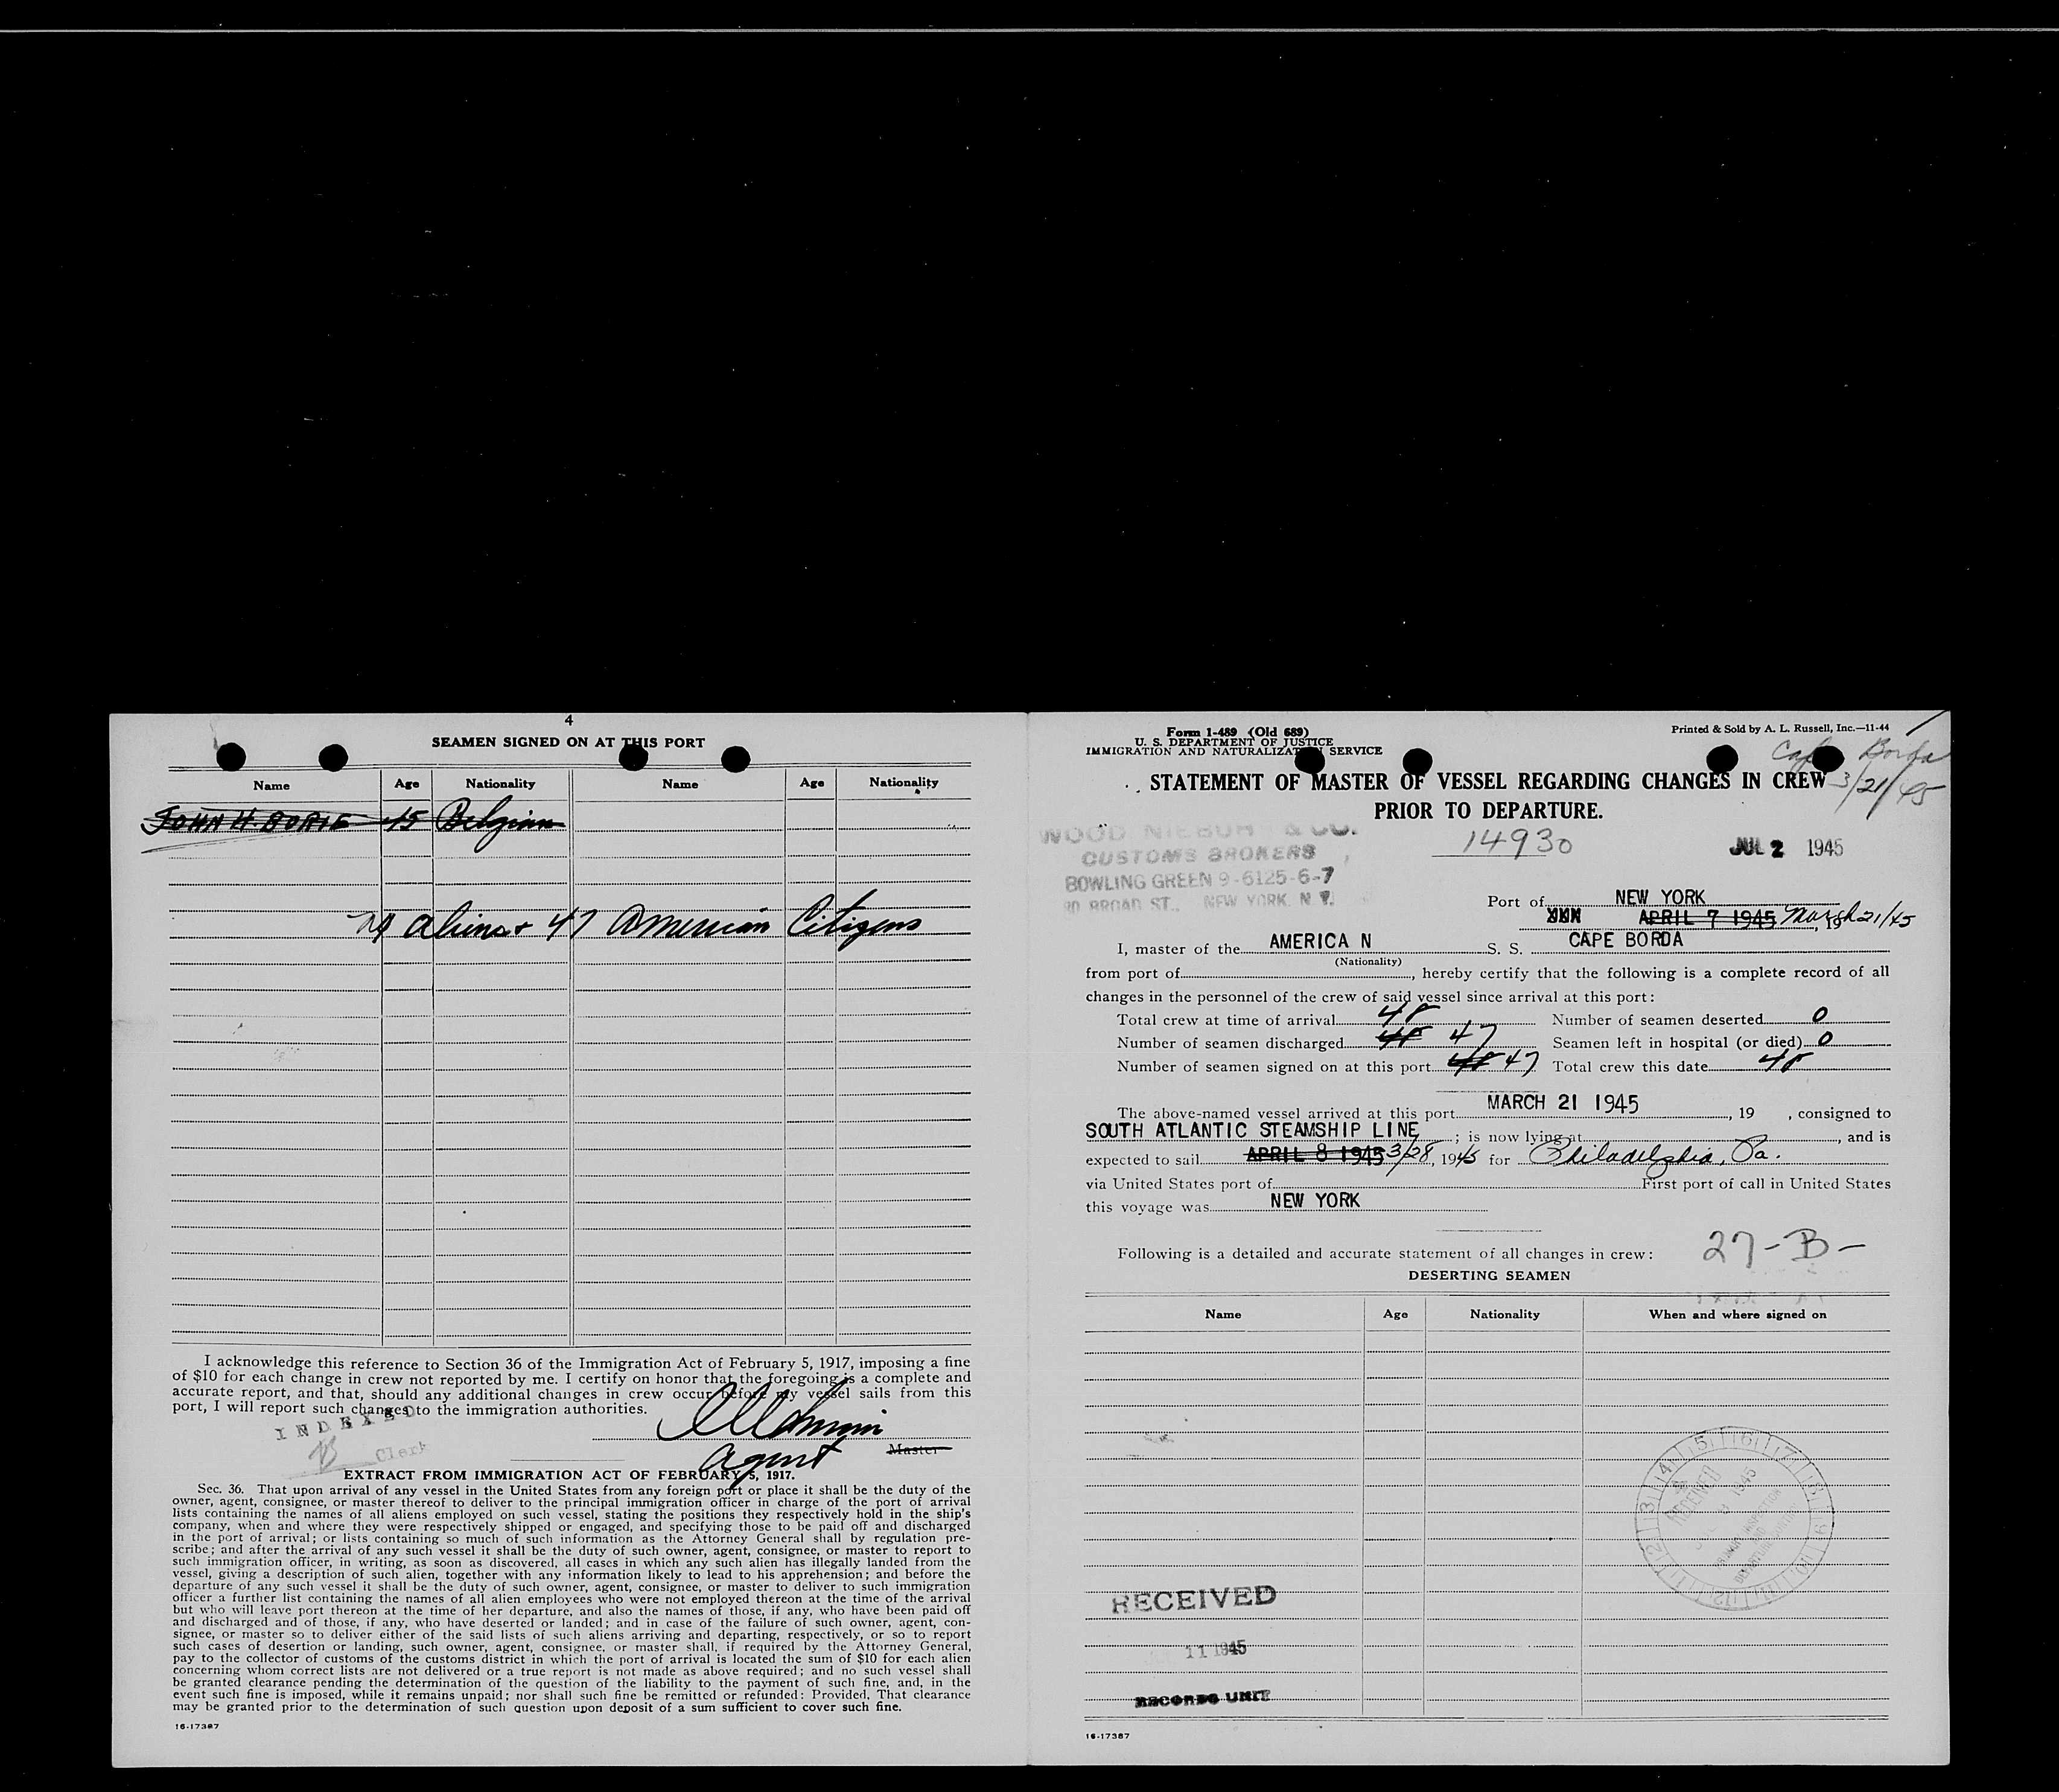 4
SEAMEN SIGNED ON AT THIS PORT
Name Age Nationality Name Age Nationality
JOHN H. BORIE 45 Belgian
No Aliens + 47 American Citizens
I acknowledge this reference to Section 36 of the Immigration Act of February 5, 1917, imposing a fine
of $10 for each change in crew not reported by me. I certify on honor that the foregoing is a complete and
accurate report, and that, should any additional changes in crew occur before my vessel sails from this
port, I will report such changes to the immigration authorities.
INDEXED
Clerk
Agent Master
EXTRACT FROM IMMIGRATION ACT OF FEBRUARY 5, 1917.
Sec. 36. That upon arrival of any vessel in the United States from any foreign port or place it shall be the duty of the
owner, agent, consignee, or master thereof to deliver to the principal immigration officer in charge of the port of arrival
lists containing the names of all aliens employed on such vessel, stating the positions they respectively hold in the ship's
company, when and where they were respectively shipped or engaged, and specifying those to be paid off and discharged
in the port of arrival; or lists containing so much of such information as the Attorney General shall by regulation pre-
scribe; and after the arrival of any such vessel it shall be the duty of such owner, agent, consignee, or master to report to
such immigration officer, in writing, as soon as discovered, all cases in which any such alien has illegally landed from the
vessel, giving a description of such alien, together with any information likely to lead to his apprehension; and before the
departure of any such vessel it shall be the duty of such owner, agent, consignee, or master to deliver to such immigration
officer a further list containing the names of all alien employees who were not employed thereon at the time of the arrival
but who will leave port thereon at the time of her departure, and also the names of those, if any, who have been paid off
and discharged and of those, if any, who have deserted or landed; and in case of the failure of such owner, agent, con-
signee, or master so to deliver either of the said lists of such aliens arriving and departing, respectively, or so to report
such cases of desertion or landing, such owner, agent, consignee, or master shall, if required by the Attorney General,
pay to the collector of customs of the customs district in which the port of arrival is located the sum of $10 for each alien
concerning whom correct lists are not delivered or a true report is not made as above required; and no such vessel shall
be granted clearance pending the determination of the question of the liability to the payment of such fine, and, in the
event such fine is imposed, while it remains unpaid; nor shall such fine be remitted or refunded: Provided, That clearance
may be granted prior to the determination of such question upon deposit of a sum sufficient to cover such fine.
16-17387
Form 1-489 (Old 689)
U. S. DEPARTMENT OF JUSTICE
IMMIGRATION AND NATURALIZATION SERVICE
Printed & Sold by A. L. Russell, Inc.—11-44
Cape Borda
3/21/45
STATEMENT OF MASTER OF VESSEL REGARDING CHANGES IN CREW
PRIOR TO DEPARTURE.
WOOD, NIEBUHR & CO.
CUSTOMS BROKERS
BOWLING GREEN 9-6125-6-7
80 BROAD ST., NEW YORK, N. Y.
14930
JUL 2 1945
Port of NEW YORK
APRIL 7 1945 March 21/45, 19
I, master of the AMERICA N S. S. CAPE BORDA
(Nationality)
from port of , hereby certify that the following is a complete record of all
changes in the personnel of the crew of said vessel since arrival at this port:
Total crew at time of arrival 48 Number of seamen deserted 0
Number of seamen discharged 48 47 Seamen left in hospital (or died) 0
Number of seamen signed on at this port 48 47 Total crew this date 48
The above-named vessel arrived at this port MARCH 21 1945, 19 , consigned to
SOUTH ATLANTIC STEAMSHIP LINE; is now lying at , and is
expected to sail APRIL 8 1945 3/28, 1945 for Philadelphia, Pa.
via United States port of First port of call in United States
this voyage was NEW YORK
Following is a detailed and accurate statement of all changes in crew: 27-B-
DESERTING SEAMEN
Name Age Nationality When and where signed on
RECEIVED
1945
RECEIVED
11 1945
RECORDS UNIT
16-17387